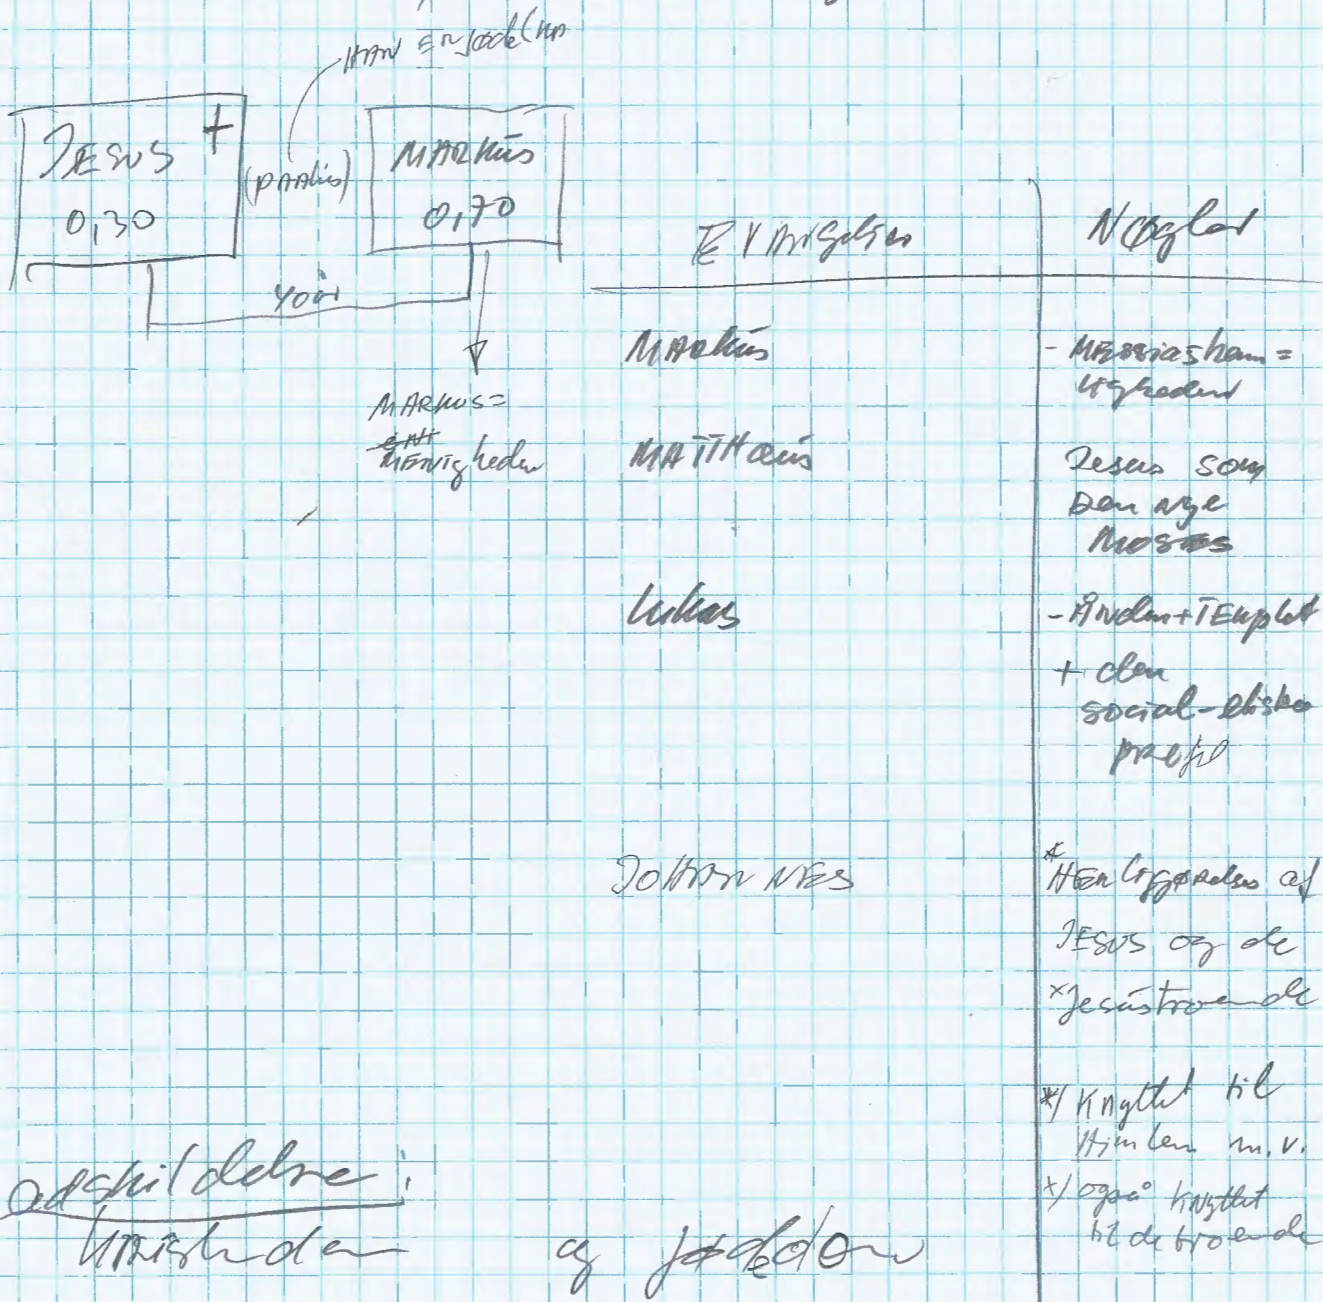 HAN ER jøde
JESUS +
0,30
(PAAlus)
MARKus
0,70
40 år
MARKUS =
MENigheden
Evangelier
Nøgler
MARkus
- MESSiashem=
ligheden
MATTHæus
Jesus som
Den nye
MOSES
Lukas
- Ånden + TEmplet
+ den
social-etiske
profil
JOHANNES
* HERliggørelse af
JESUS og de
x Jesustroende
*/ Knyttet til
Himlen m.v.
x/ også knyttet
til de troende
adskildelse:
Kristendom og jødedom